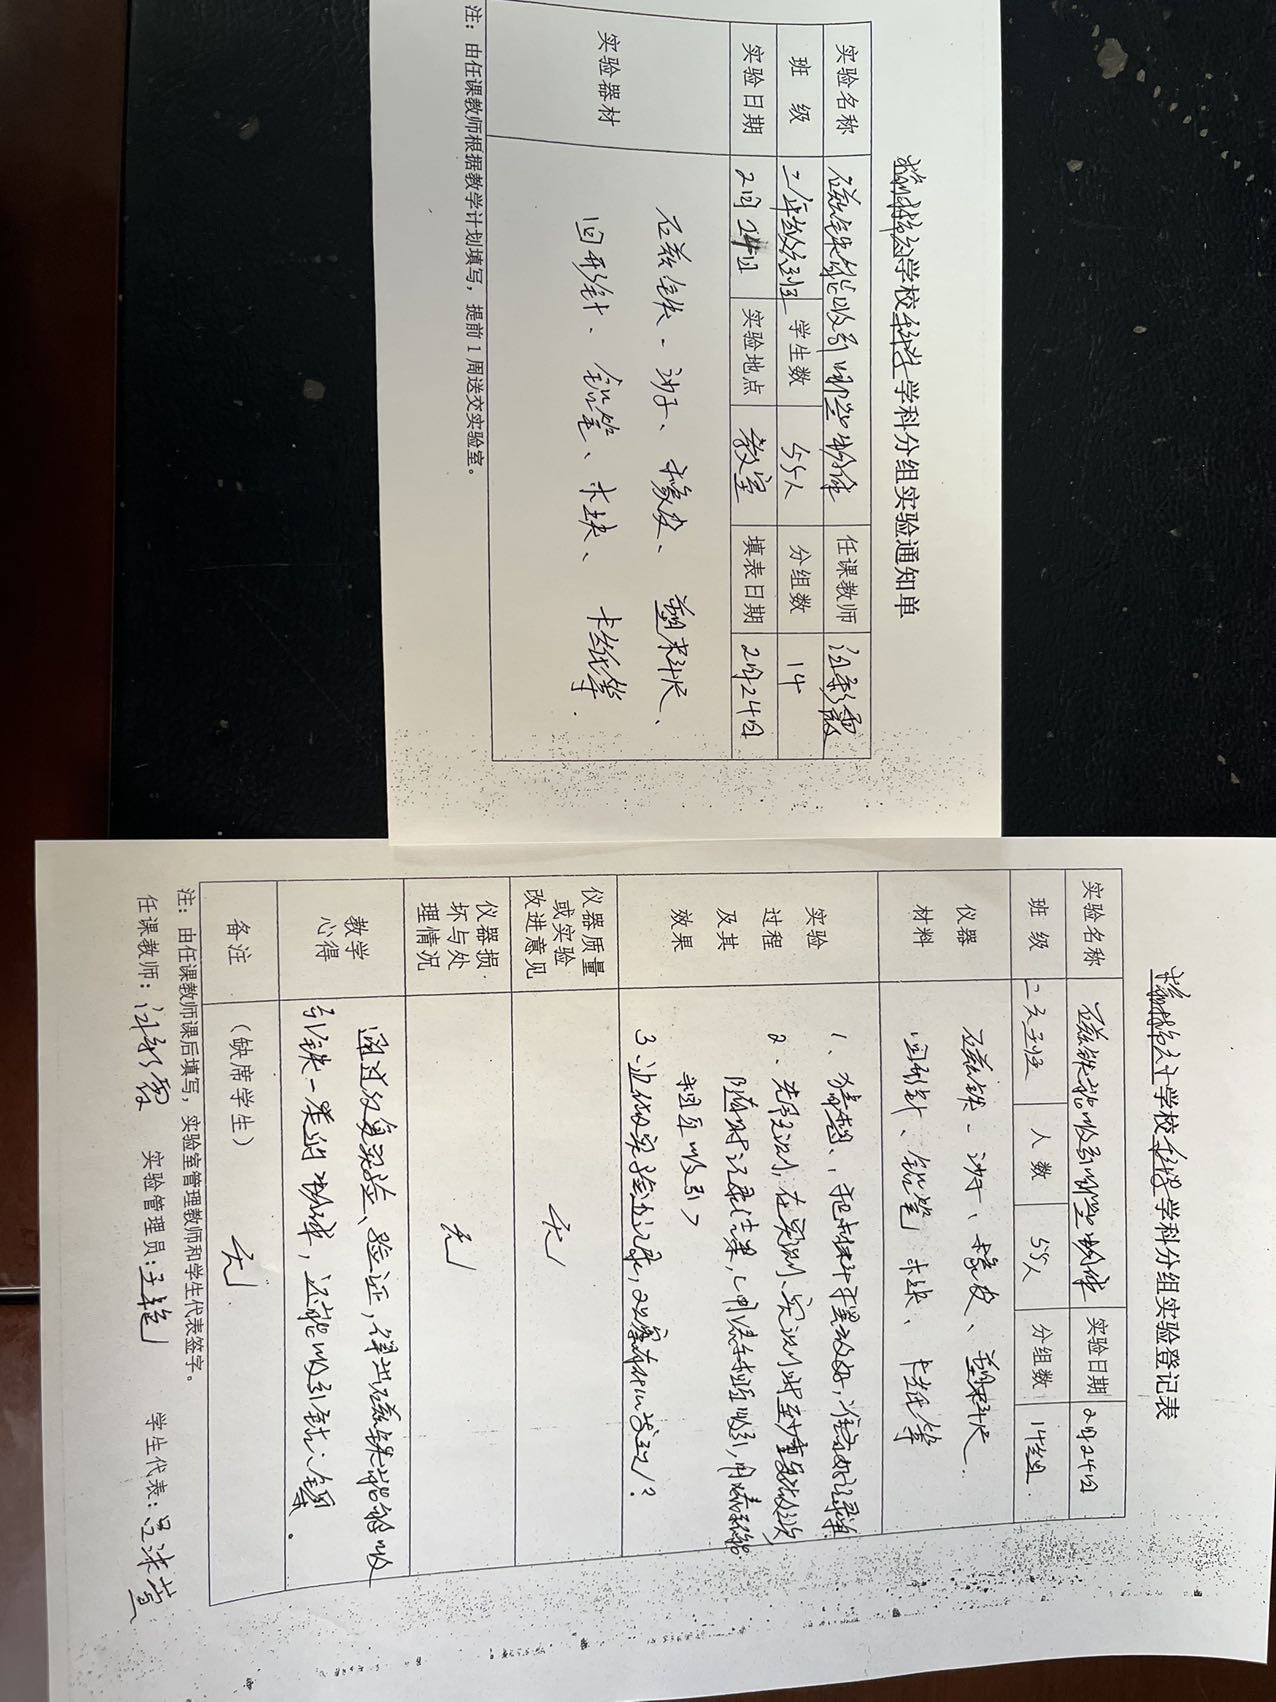 学校科学学科分组实验通知单
实验名称 磁铁能吸引哪些物体 任课教师
班 级 二年级 班 学生数 55人 分组数 14
实验日期 2月24日 实验地点 教室 填表日期 2月24日
实验器材
磁铁、沙子、橡皮、塑料尺、
回形针、铅笔、木块、卡纸等.
注：由任课教师根据教学计划填写，提前1周送交实验室。
学校科学学科分组实验登记表
实验名称 磁铁能吸引哪些物体 实验日期 2月24日
班 级 人 数 55人 分组数 14组
仪器
材料
磁铁、沙子、橡皮、塑料尺
回形针、铅笔 木块、卡纸等
实验
过程
及其
效果
1、猜想，把材料 放好，准备好记录单
2、先预测，在实测、实测时至少重复 次
随时记录结果，
相互吸引>
3、 实验 记录， 有什么发现？
仪器质量
或实验
改进意见
无
仪器损
坏与处
理情况
无
教学
心得
通过反复实验、验证，得出磁铁能够吸
引铁一类的物体，还能吸引钴、镍。
备注 （缺席学生） 无
注：由任课教师课后填写，实验室管理教师和学生代表签字。
任课教师： 实验管理员：王艳 学生代表：